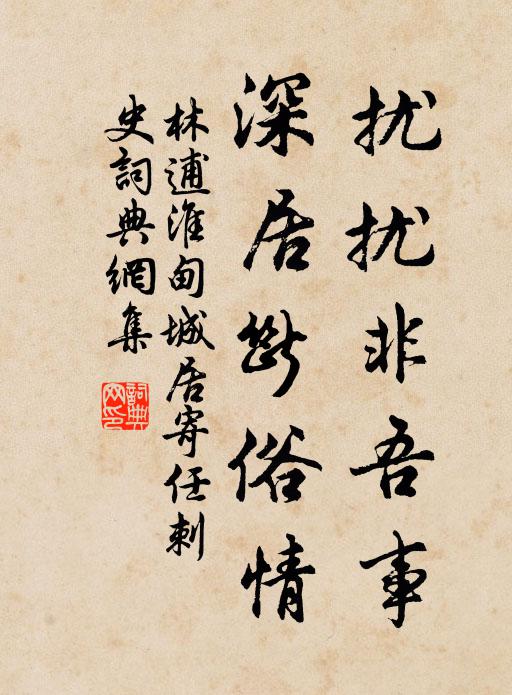 扰扰非吾事
深居断俗情
林逋淮甸城居寄任刺
史詞典網集
詞典
网印